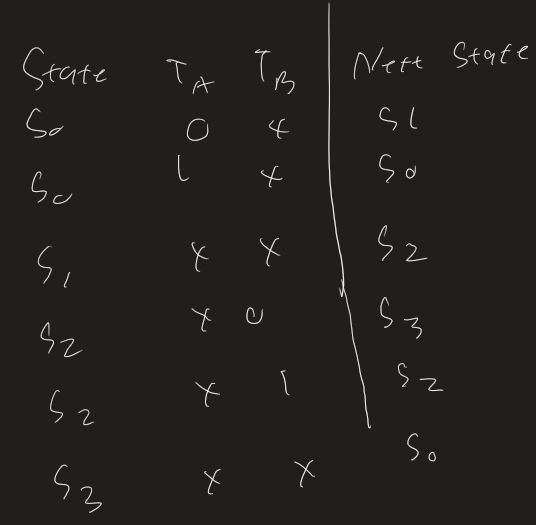 State T_A T_B Next State
S0 0 x S1
S0 1 x S0
S1 x x S2
S2 x 0 S3
S2 x 1 S2
S3 x x S0